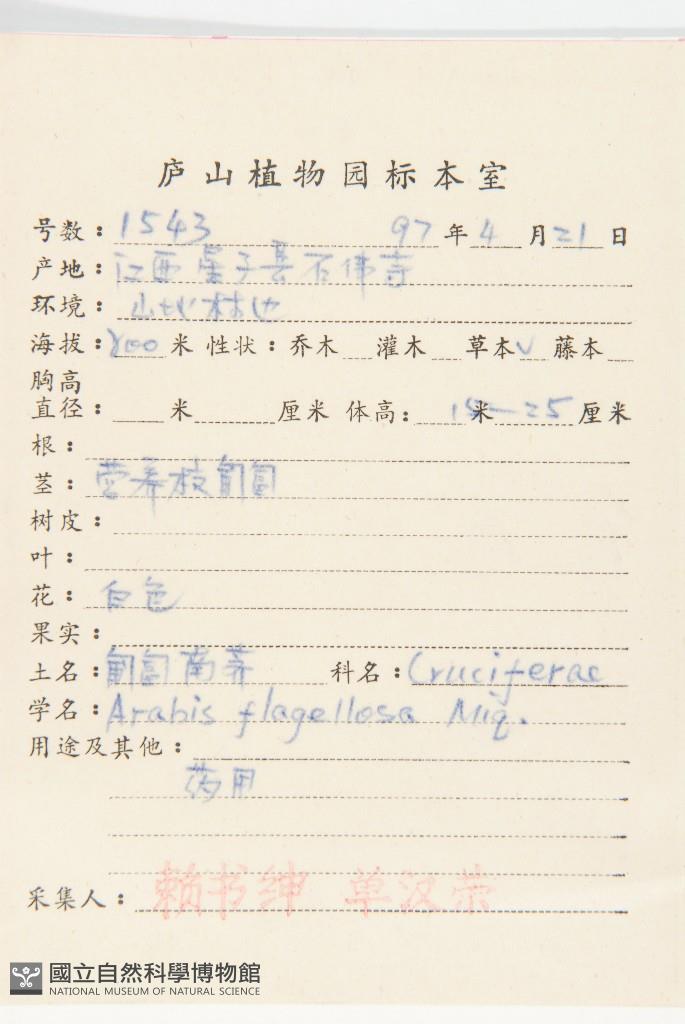 庐山植物园标本室
号数：1543 97年4月21日
产地：江西星子县石佛寺
环境：山地林边
海拔：800米 性状：乔木 灌木 草本√ 藤本
胸高
直径： 米 厘米 体高： 米15—25厘米
根：
茎：营养枝匍匐
树皮：
叶：
花：白色
果实：
土名：匍匐南芥 科名：Cruciferae
学名：Arabis flagellosa Miq.
用途及其他：
药用
采集人：赖书绅 单汉荣
國立自然科學博物館
NATIONAL MUSEUM OF NATURAL SCIENCE